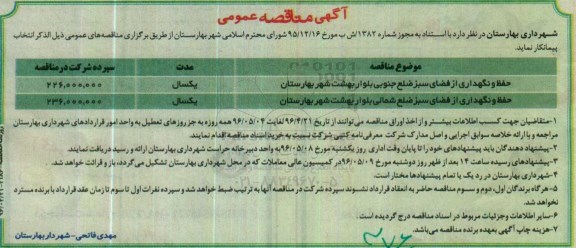 آگهی مناقصه عمومی
شهرداری بهارستان در نظر دارد با استناد به مجوز شماره ۱۳۸۲/ش ب مورخ ۹۵/۱۲/۱۶ شورای محترم اسلامی شهر بهارستان از طریق برگزاری مناقصه‌های عمومی ذیل الذکر انتخاب
پیمانکار نماید.
موضوع مناقصه مدت سپرده شرکت در مناقصه
حفظ و نگهداری از فضای سبز ضلع جنوبی بلوار بهشت شهر بهارستان یکسال ۲۲۶,۰۰۰,۰۰۰
حفظ و نگهداری از فضای سبز ضلع شمالی بلوار بهشت شهر بهارستان یکسال ۲۳۶,۰۰۰,۰۰۰
۱-متقاضیان جهت کسب اطلاعات بیشتر و اخذ اوراق مناقصه می‌توانند از تاریخ ۹۶/۴/۲۱ لغایت ۹۶/۰۵/۰۴ همه روزه به جز روزهای تعطیل به واحد امور قراردادهای شهرداری بهارستان
مراجعه و با ارائه خلاصه سوابق اجرایی و اصل مدارک شرکت معرفی‌نامه کتبی شرکت نسبت به خرید اسناد مناقصه اقدام نمایند.
۲-پیشنهاد دهندگان باید پیشنهادهای خود را تا پایان وقت اداری روز یکشنبه مورخ ۹۶/۰۵/۰۸ به واحد دبیرخانه حراست شهرداری بهارستان ارائه و رسید دریافت نمایند.
۳-پیشنهادهای رسیده ساعت ۱۴ بعد از ظهر روز دوشنبه مورخ ۹۶/۰۵/۰۹ در کمیسیون عالی معاملات که در محل شهرداری بهارستان تشکیل می‌گردد، باز و قرائت خواهد شد.
۴-شهرداری بهارستان در رد یک یا تمام پیشنهادها مختار است.
۵-هرگاه برندگان اول، دوم و سوم مناقصه حاضر به انعقاد قرارداد نشوند سپرده شرکت در مناقصه آنها به ترتیب ضبط خواهد شد و سپرده نفرات اول تا سوم تا زمان عقد قرارداد با برنده مسترد
نخواهد شد.
۶-سایر اطلاعات و جزئیات مربوط در اسناد مناقصه درج گردیده است.
۷-هزینه چاپ آگهی بعهده برنده مناقصه می‌باشد.
مهدی فاتحی-شهردار بهارستان